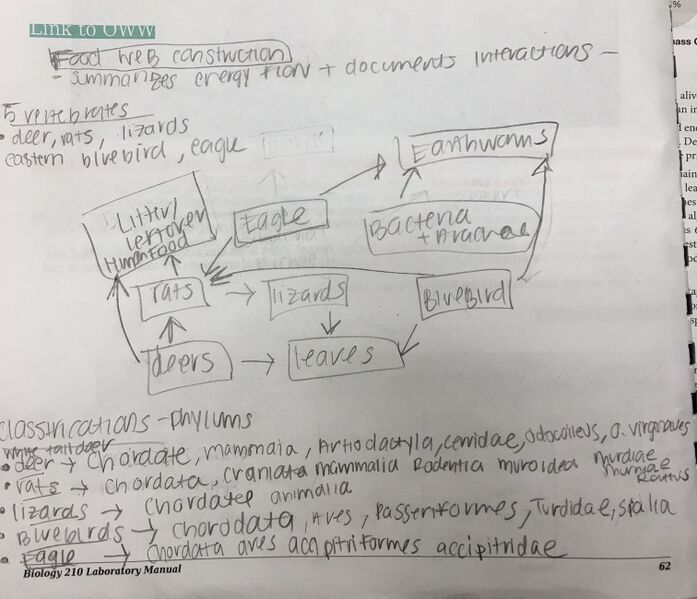 Link to OWW
Food web construction
- summarizes energy flow + documents interactions -
5 vertebrates
• deer, rats, lizards
eastern bluebird, eagle
Earthworms
Litter/
leftover
Human Food
Eagle
Bacteria
+ Archaea
rats
lizards
BlueBird
deers
leaves
classifications - phylums
white tail deer
• deer → Chordate, mammalia, Artiodactyla, cervidae, Odocoileus, O. virginaves
• rats → chordata, craniata mammalia Rodentia muroidea muridae
murinae
Rattus
• lizards → chordatee animalia
• Bluebirds → chorddata, Aves, Passeriformes, Turdidae, sialia
• Eagle → Chordata aves accipitriformes accipitridae
Biology 210 Laboratory Manual
62